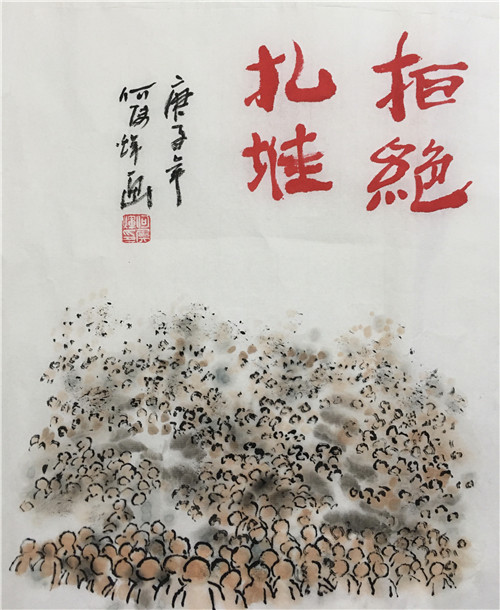 拒絶
扎堆
庚子年
何 画